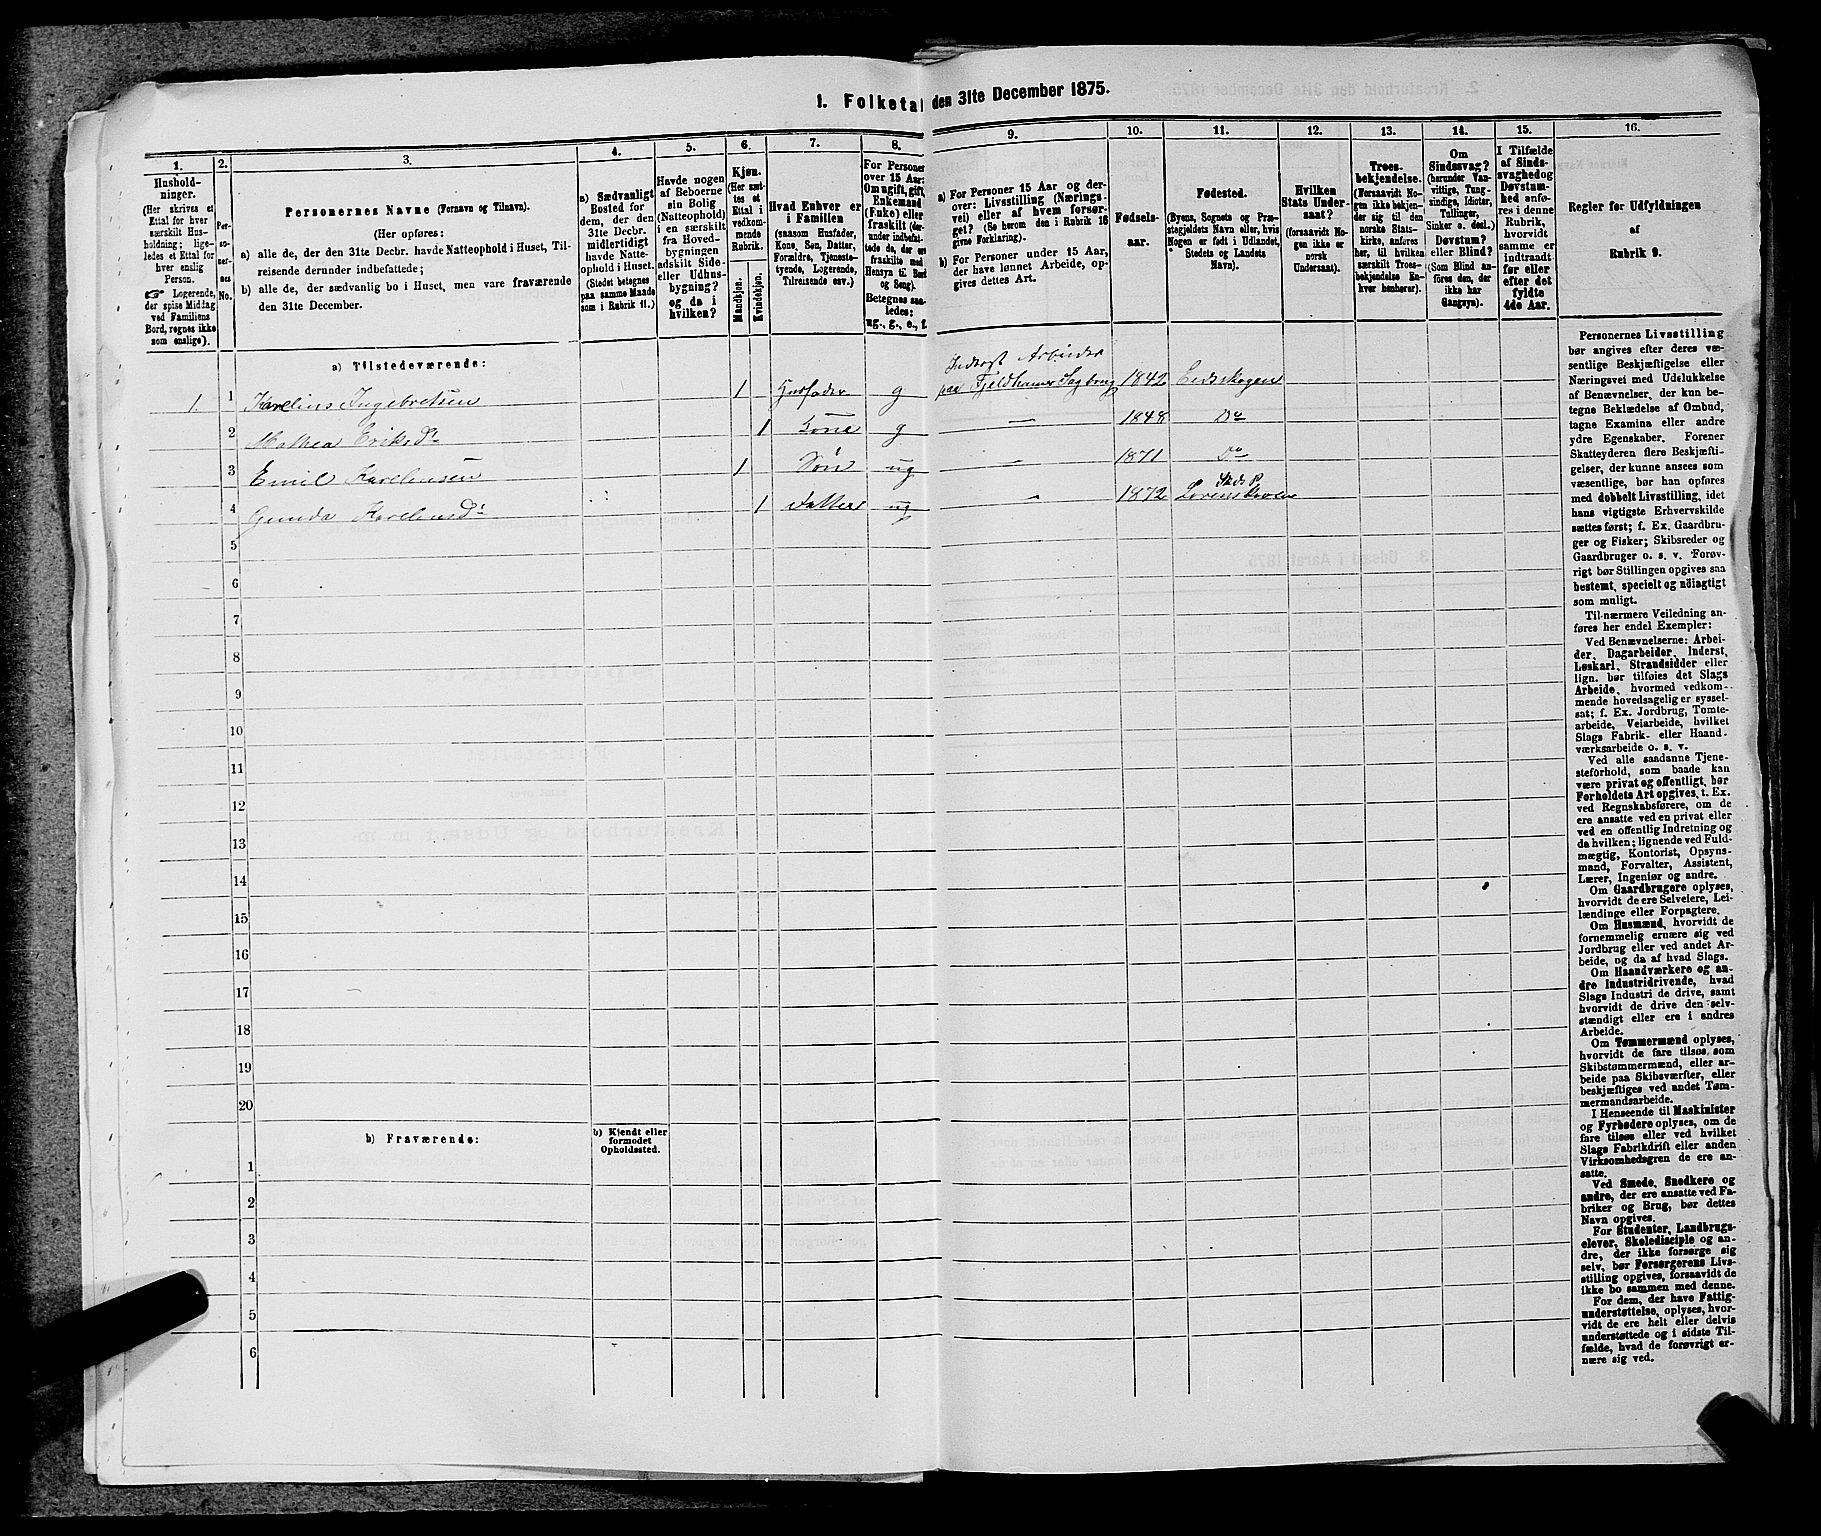 1. Folketal den 31te December 1875.
1. 2. 3. 4. 5. 6. 7. 8. 9. 10. 11. 12. 13. 14. 15. 16.
Hushold-
ninger.
(Her skrives et
Ettal for hver
særskilt Hus-
holdning; lige-
ledes et Ettal for
hver enslig
Person.
☞ Logerende,
der spise Middag
ved Familiens
Bord, regnes ikke
som enslige).
Per-
so-
ner-
nes
No.
Personernes Navne (Fornavn og Tilnavn).
(Her opføres:
a) alle de, der den 31te Decbr. havde Natteophold i Huset, Til-
reisende derunder indbefattede;
b) alle de, der sædvanlig bo i Huset, men vare fraværende
den 31te December.
a) Sædvanligt
Bosted for
dem, der den
31te Decbr.
midlertidigt
havde Natte-
ophold i Huset.
(Stedet betegnes
paa samme Maade
som i Rubrik 11.)
Havde nogen
af Beboerne
sin Bolig
(Natteophold)
i en særskilt
fra Hoved-
bygningen
adskilt Side-
eller Udhus-
bygning?
og da i
hvilken?
Kjøn.
(Her sæt-
tes et
Ettal i
vedkom-
mende
Rubrik.
Mandkjøn.
Kvindekjøn.
Hvad Enhver er
i Familien
(saasom Husfader,
Kone, Søn, Datter,
Forældre, Tjeneste-
tyende, Logerende,
Tilreisende osv.)
For Personer
over 15 Aar:
Om ugift, gift,
Enkemand
(Enke) eller
fraskilt (der-
under indbefat-
tede de, der ere
fraskilte med
Hensyn til Bord
og Seng).
Betegnes saa-
ledes:
ug., g., e., f.
a) For Personer 15 Aar og der-
over: Livsstilling (Nærings-
vei) eller af hvem forsør-
get? (Se herom den i Rubrik 16
givne Forklaring).
b) For Personer under 15 Aar,
der have lønnet Arbeide, op-
gives dettes Art.
Fødsels-
aar.
Fødested.
(Byens, Sognets og Præ-
stegjeldets Navn eller, hvis
Nogen er født i Udlandet,
Stedets og Landets
Navn).
Hvilken
Stats Under-
saat?
(forsaavidt No-
gen ikke er
norsk
Undersaat).
Troes-
bekjendelse.
(Forsaavidt No-
gen ikke bekjen-
der sig til den
norske Stats-
kirke, anføres
her, til hvilken
særskilt Troes-
bekjendelse En-
hver henhører).
Om
Sindssvag?
(herunder Van-
vittige, Tung-
sindige, Idioter,
Tullinger,
Sinker o. desl.)
Døvstum?
eller Blind?
(Som Blind an-
føres den, der
ikke har
Gangsyn).
I Tilfælde
af Sinds-
svaghed og
Døvstum-
hed anfø-
res i denne
Rubrik,
hvorvidt
samme er
indtraadt
før eller
efter det
fyldte
4de Aar.
Regler for Udfyldningen
af
Rubrik 9.
a) Tilstedeværende:
1. 1 Karelius Ingebretsen 1 Husfader g Inderst Arbeider paa Fjeldhamer Sagbrug 1842 Eedskogen
2 Mathea Eriks Dr 1 Kone g — 1848 Do
3 Emil Karelinsen 1 Søn ug — 1871 Do
4 Gunda Karelins Dr 1 Datter ug — 1872 Skeds P. Lørenskoven
5
6
7
8
9
10
11
12
13
14
15
16
17
18
19
20
b) Fraværende:
b) Kjendt eller
formodet
Opholdssted.
1
2
3
4
5
6
Personernes Livsstilling
bør angives efter deres væ-
sentlige Beskjæftigelse eller
Næringsvei med Udelukkelse
af Benævnelser, der kun be-
tegne Beklædelse af Ombud,
tagne Examina eller andre
ydre Egenskaber. Forener
Skatteyderen flere Beskjæfti-
gelser, der kunne ansees som
væsentlige, bør han opføres
med dobbelt Livsstilling, idet
hans vigtigste Erhvervskilde
sættes først; f. Ex. Gaardbru-
ger og Fisker; Skibsreder og
Gaardbruger o. s. v. Forøv-
rigt bør Stillingen opgives saa
bestemt, specielt og nöiagtigt
som muligt.
Til nærmere Veiledning an-
føres her endel Exempler:
Ved Benævnelserne: Arbei-
der, Dagarbeider, Inderst,
Løskarl, Strandsidder eller
lign. bør tilføies det Slags
Arbeide, hvormed vedkom-
mende hovedsagelig er syssel-
sat; f. Ex. Jordbrug, Tomte-
arbeide, Veiarbeide, hvilket
Slags Fabrik- eller Haand-
værksarbeide o. s. v.
Ved alle saadanne Tjene-
steforhold, som baade kan
være privat og offentligt, bør
Forholdets Art opgives, t. Ex.
ved Regnskabsførere, om de
ere ansatte ved en privat eller
ved en offentlig Indretning og
da hvilken; lignende ved Fuld-
mægtig, Kontorist, Opsyns-
mand, Forvalter, Assistent,
Lærer, Ingeniør og andre.
Om Gaardbrugere oplyses,
hvorvidt de ere Selveiere, Lei-
lændinge eller Forpagtere.
Om Husmænd, hvorvidt de
fornemmelig ernære sig ved
Jordbrug eller ved andet Ar-
beide, og da af hvad Slags.
Om Haandværkere og an-
dre Industridrivende, hvad
Slags Industri de drive, samt
hvorvidt de drive den selv-
stændigt eller ere i andres
Arbeide.
Om Tømmermænd oplyses,
hvorvidt de fare tilsøs som
Skibstømmermænd, eller ar-
beide paa Skibsværfter, eller
beskjæftiges ved andet Tøm-
mermandsarbeide.
I Henseende til Maskinister
og Fyrbødere oplyses, om de
fare tilsøs eller ved hvilket
Slags Fabrikdrift eller anden
Virksomhedsgren de ere an-
satte.
Ved Smede, Snedkere og
andre, der ere ansatte ved Fa-
briker og Brug, bør dettes
Navn opgives.
For Studenter, Landbrugs-
elever, Skoledisciple og an-
dre, der ikke forsørge sig
selv, bør Forsørgerens Livs-
stilling opgives, forsaavidt de
ikke bo sammen med denne.
For dem, der have Fattig-
understøttelse, oplyses, hvor-
vidt de ere helt eller delvis
understøttede og i sidste Til-
fælde, hvad de forøvrigt er-
nære sig ved.